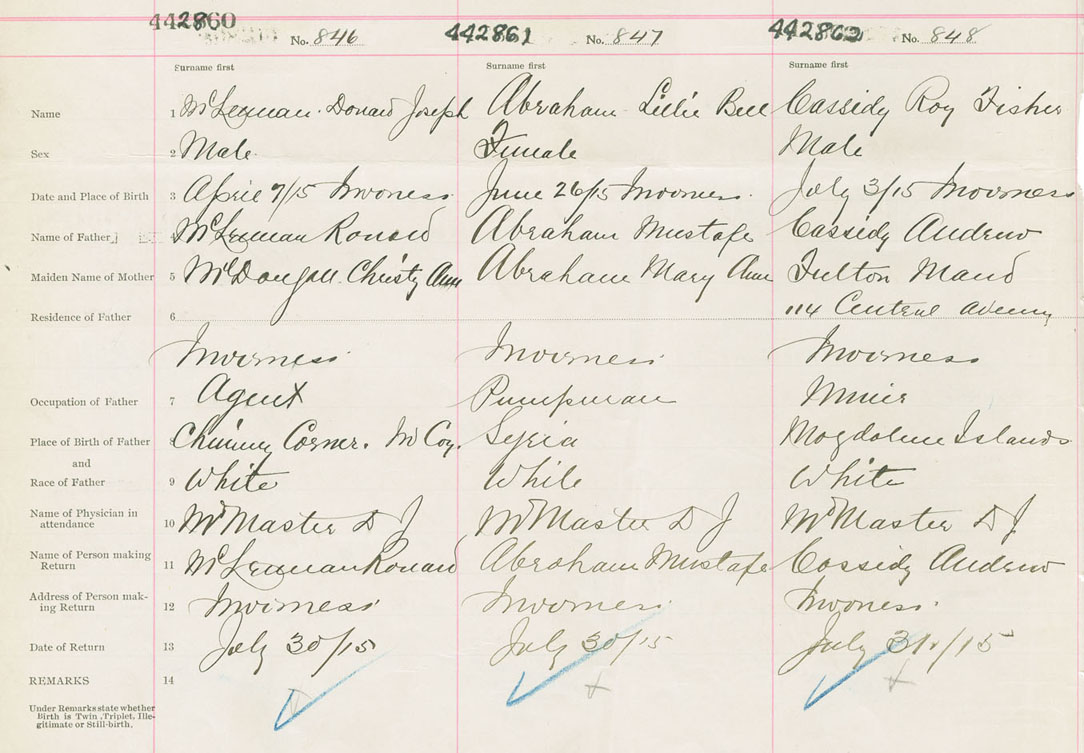 442860 No. 846 442861 No. 847 442862 No. 848
Surname first Surname first Surname first
Name 1 McLennan Donald Joseph Abraham Lillie Bell Cassidy Roy Fisher
Sex 2 Male Female Male
Date and Place of Birth 3 April 9/15 Inverness June 26/15 Inverness July 3/15 Inverness
Name of Father 4 McLennan Ronald Abraham Mustafe Cassidy Andrew
Maiden Name of Mother 5 McDougall Christy Ann Abraham Mary Ann Fulton Maud
Residence of Father 6 114 Central Avenue
Inverness Inverness Inverness
Occupation of Father 7 Agent Pumpman Miner
Place of Birth of Father 8 Chimney Corner. In Coy. Syria Magdalene Islands
and
Race of Father 9 White White White
Name of Physician in
attendance 10 McMaster D J McMaster D J McMaster D J
Name of Person making
Return 11 McLennan Ronald Abraham Mustafe Cassidy Andrew
Address of Person mak-
ing Return 12 Inverness Inverness Inverness
Date of Return 13 July 30/15 July 30/15 July 31/15
REMARKS 14
Under Remarks state whether
Birth is Twin, Triplet, Ille-
gitimate or Still-birth.